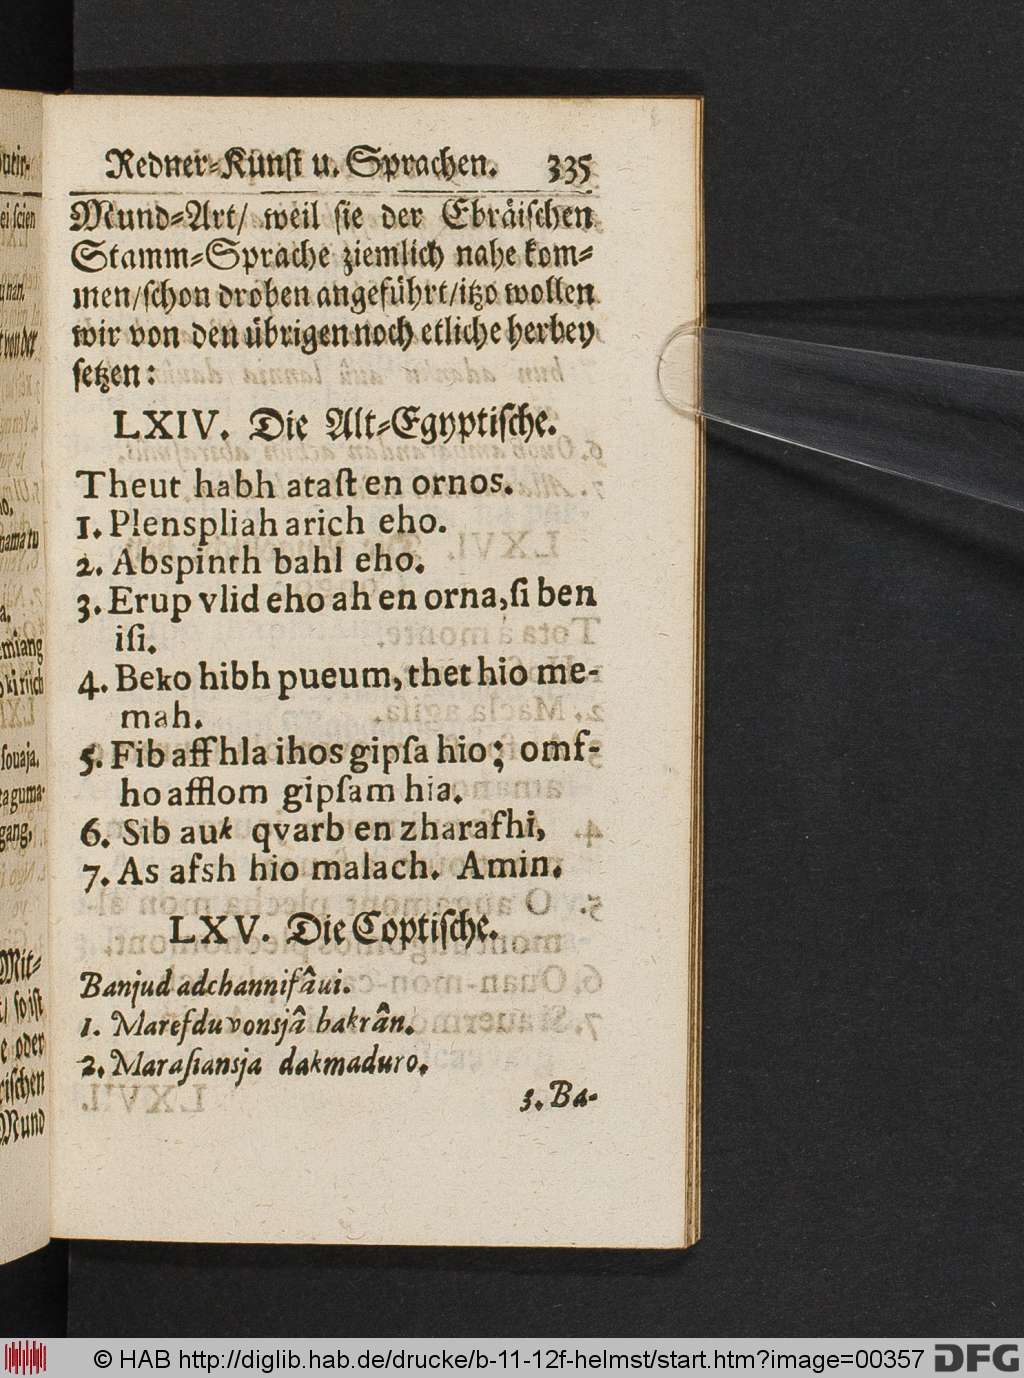 Redner-Kunst u. Sprachen. 335
Mund-Art/ weil sie der Ebräischen
Stamm-Sprache ziemlich nahe kom-
men/schon droben angeführt/itzo wollen
wir von den übrigen noch etliche herbey
setzen:
LXIV. Die Alt-Egyptische.
Theut habh atast en ornos.
1. Plenspliah arich eho.
2. Abspinth bahl eho.
3. Erup vlid eho ah en orna, si ben
isi.
4. Beko hibh pueum, thet hio me-
mah.
5. Fib affhla ihos gipsa hio; omf-
ho afflom gipsam hia.
6. Sib auk qvarb en zharafhi,
7. As afsh hio malach. Amin.
LXV. Die Coptische.
Banjud adchannifâui.
1. Marefdu vonsjâ bakrân.
2. Marasiansja dakmaduro.
3. Ba-
© HAB http://diglib.hab.de/drucke/b-11-12f-helmst/start.htm?image=00357 DFG